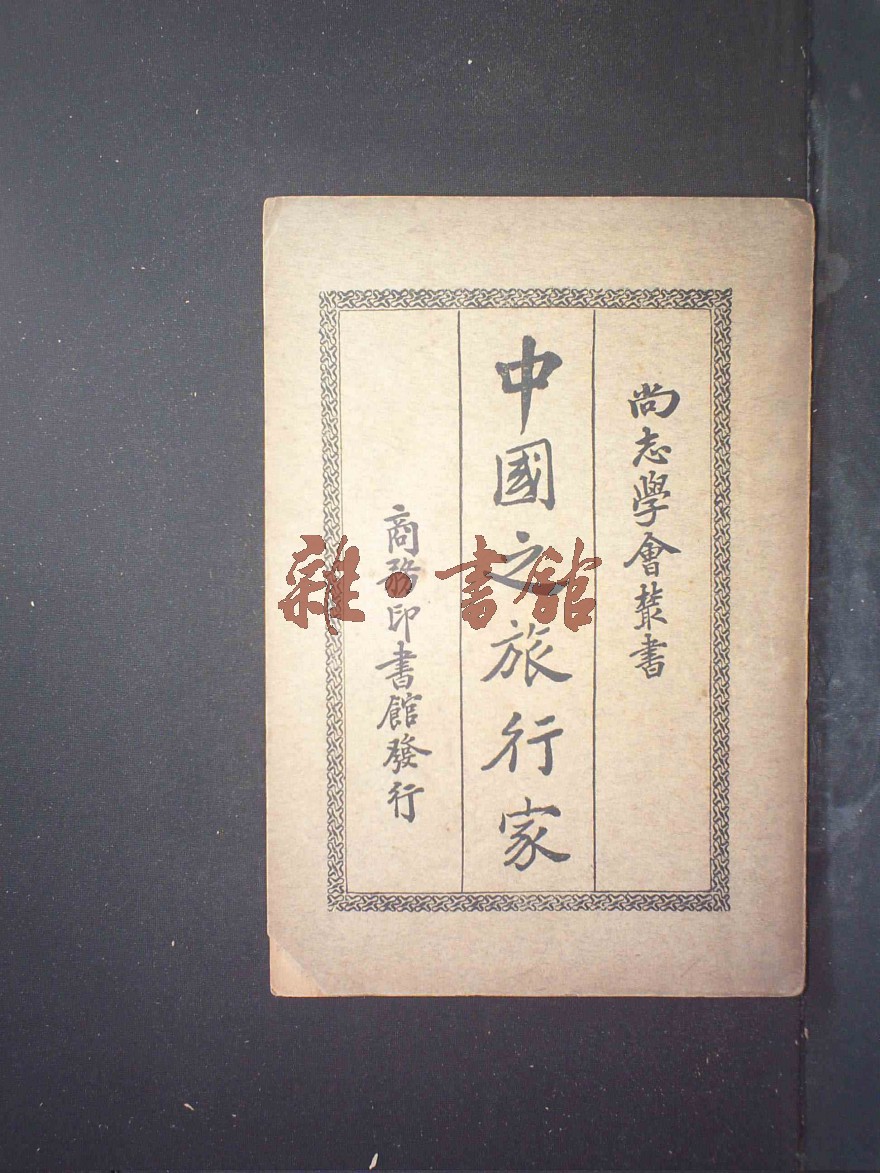 尚志學會叢書
中國之旅行家
商務印書館發行
雜·書館